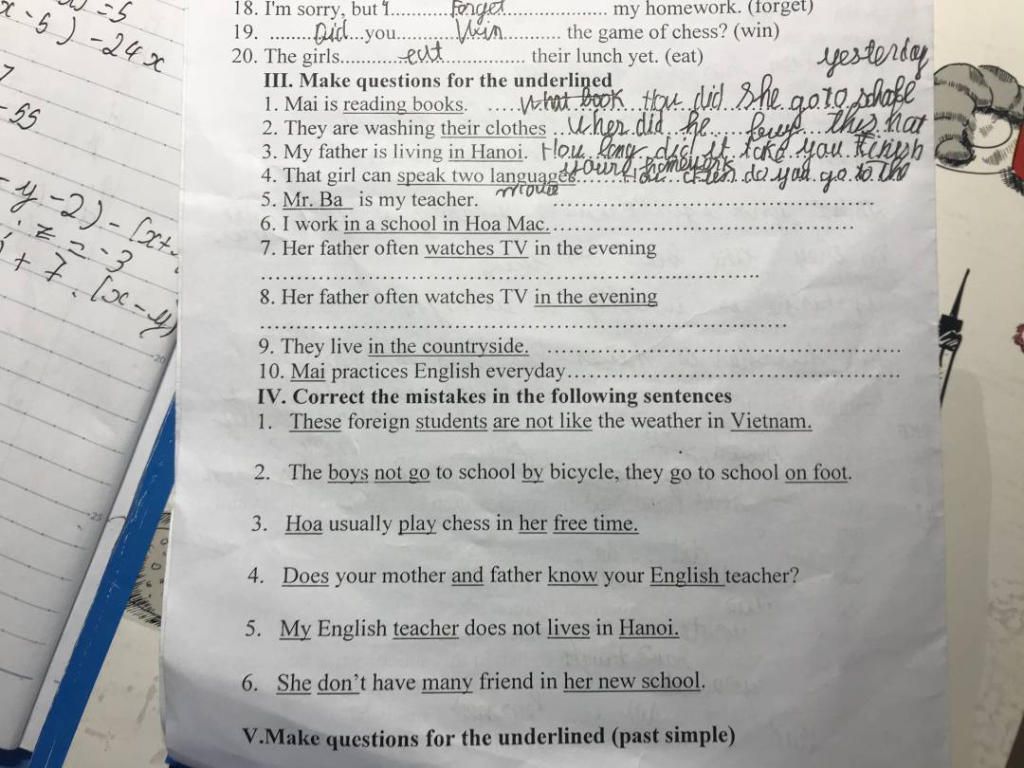 x - 5) - 24x
= 5
- 55
- y - 2) - [x +
z = -3
+ 7 . [x - y]
18. I'm sorry, but I.......... forget .......... my homework. (forget)
19. ........ Did ...you.......... Win .......... the game of chess? (win)
20. The girls.......... eat .......... their lunch yet. (eat)
yesterday
III. Make questions for the underlined
1. Mai is reading books. ..... What book How did She go to
2. They are washing their clothes .. did he this hat
3. My father is living in Hanoi. How long did it take you
4. That girl can speak two languages do you go to the
5. Mr. Ba is my teacher. ..........
6. I work in a school in Hoa Mac...........
7. Her father often watches TV in the evening
..........
8. Her father often watches TV in the evening
..........
9. They live in the countryside. ..........
10. Mai practices English everyday..........
IV. Correct the mistakes in the following sentences
1. These foreign students are not like the weather in Vietnam.
2. The boys not go to school by bicycle, they go to school on foot.
3. Hoa usually play chess in her free time.
4. Does your mother and father know your English teacher?
5. My English teacher does not lives in Hanoi.
6. She don't have many friend in her new school.
V.Make questions for the underlined (past simple)